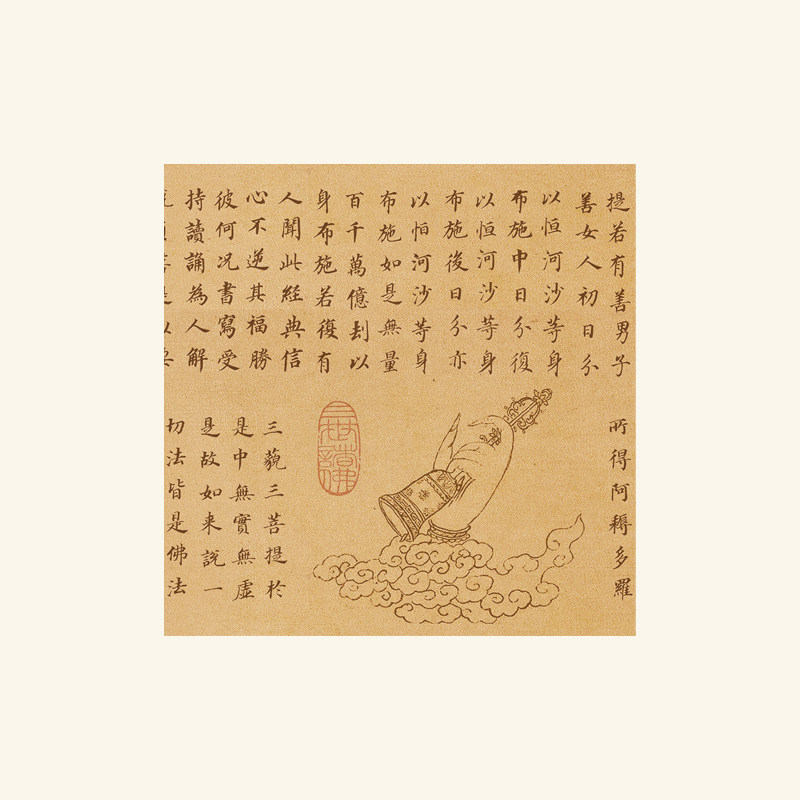 提若有善男子
善女人初日分
以恒河沙等身
布施中日分復
以恒河沙等身
布施後日分亦
以恒河沙等身
布施如是無量
百千萬億刦以
身布施若復有
人聞此經典信
心不逆其福勝
彼何况書寫受
持讀誦為人解
所得阿耨多羅
三藐三菩提於
是中無實無虛
是故如来說一
切法皆是佛法